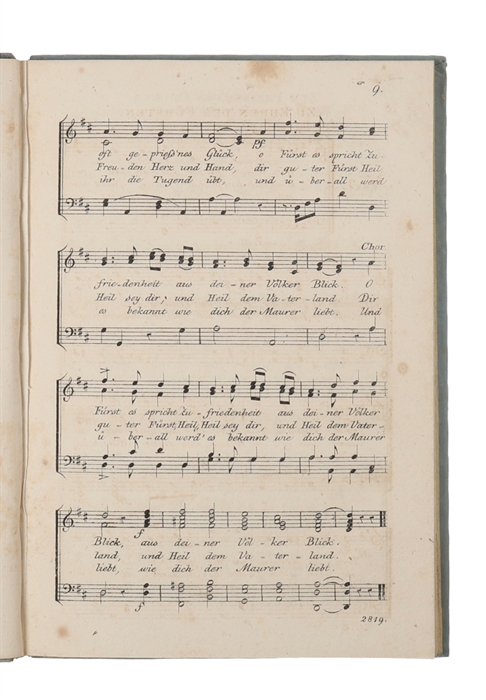 9.
pf
oft ge-prieß'nes Glück, o Fürst es spricht Zu-
Freu-den Herz und Hand, dir gu-ter Fürst Heil
ihr die Tugend übt, und ü-ber-all werd
Chor
frie-denheit aus dei-ner Völker Blick. O
Heil sey dir; und Heil dem Va-ter-land Dir
es bekannt wie dich der Maurer liebt. Und
Fürst es spricht Zu-friedenheit aus dei-ner Völker
gu-ter Fürst, Heil, Heil sey dir, und Heil dem Vater-
ü-ber-all werd' es bekannt wie dich der Maurer
f
Blick, aus dei-ner Völ-ker Blick.
land, und Heil dem Va-ter-land.
liebt, wie dich der Maurer liebt.
f
2819.